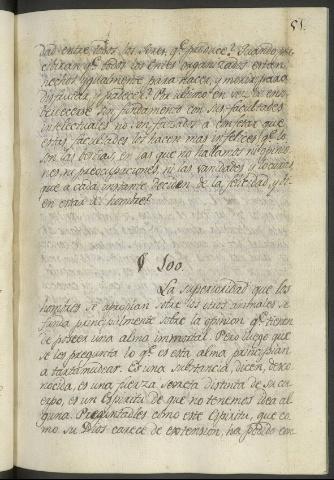 51.
dad entre todos los seres, qᵉ produce? Quando
cibiran qᵉ todos los entes organizados estan
hechos ygualmente para nacer, y morir, para
disfrutar y padecer? Por ultimo en vez de enso-
bervecerse sin fundamento con sus facultades
intelectuales no son forzados a confesar que
estas facultades los hacen mas infelices qᵉ lo
son las bestias, en las que no hallamos ni opinio-
nes, ni preocupaciones, ni las vanidades y locuras
que a cada instante deciden de la felicidad, y bi-
en estar del hombre?
§ 100.
La superioridad que los
hombres se apropian sobre los otros animales se
funda principalmente sobre la opinion qᵉ tienen
de poseer una alma inmortal. Pero luego que
se les pregunta lo qᵉ es esta alma principian
a tartamudear. Es una substancia, dicen, desco-
nocida, es una fuerza secreta distinta de su cu-
erpo, es un Espiritu de que no tenemos idea al-
guna. Preguntadles cómo este Espiritu, que co-
mo su Dios carece de extension, ha podido com-